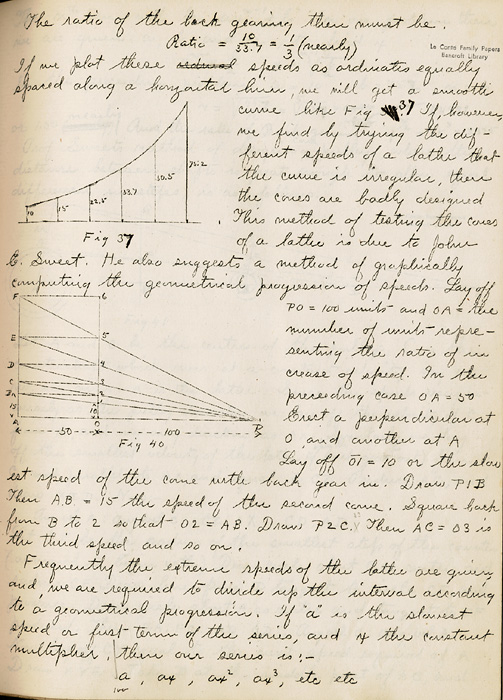 The ratio of the back gearing then must be.
Ratio = 10/33.7 = 1/3 (nearly)
Le Conte Family Papers
Bancroft Library
If we plot these speeds as ordinates equally
spaced along a horizontal line, we will get a smooth
curve like Fig 37 If, however,
we find by trying the dif-
ferent speeds of a lathe that
the curve is irregular, then
the cones are badly designed
This method of testing the cones
of a lathe is due to John
10
15
22.5
33.7
50.5
75.2
Fig 37
E. Sweet. He also suggests a method of graphically
computing the geometrical progression of speeds. Lay off
PO = 100 units and OA = the
number of units repre-
senting the ratio of in
crease of speed. In the
preceeding case OA = 50
Erect a perpendicular at
O and another at A
F 6
E 5
D 4
C 3
B 2
15
10
A O P
50 100
Fig 40
Lay off O1 = 10 or the slow
est speed of the cone with back gear in. Draw P1B
Then AB = 15 the speed of the second cone. Square back
from B to 2 so that O2 = AB. Draw P2C. Then AC = O3 is
the third speed and so on.
Frequently the extreme speeds of the lathe are given
and, we are required to divide up the interval according
to a geometrical progression. If "a" is the slowest
speed or first term of the series, and x the constant
multiplier, then our series is:-
a, ax, ax², ax³, etc etc